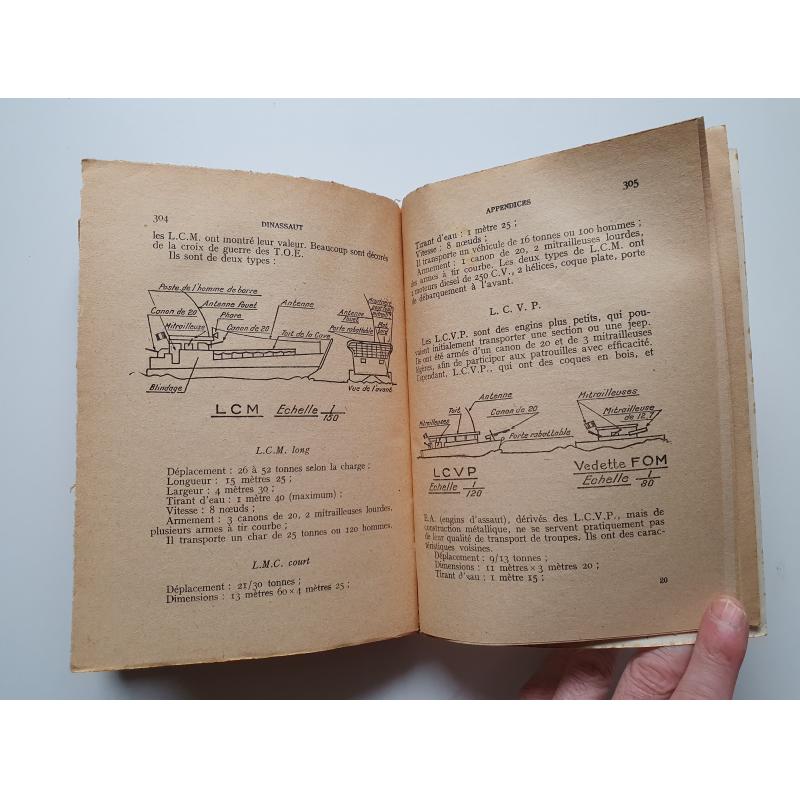 304
DINASSAUT
les L.C.M. ont montré leur valeur. Beaucoup sont décorés
de la croix de guerre des T.O.E.
Ils sont de deux types :
Poste de l'homme de barre
Antenne fouet
Antenne
Canon de 20
Phare
Mitrailleuse
Canon de 20
Toit de la Cave
Antenne fouet
Porte rabattable
Blindage
Vue de l'avant
LCM Echelle 1/150
L.C.M. long
Déplacement : 26 à 52 tonnes selon la charge :
Longueur : 15 mètres 25 ;
Largeur : 4 mètres 30 ;
Tirant d'eau : 1 mètre 40 (maximum) ;
Vitesse : 8 nœuds ;
Armement : 3 canons de 20, 2 mitrailleuses lourdes,
plusieurs armes à tir courbe ;
Il transporte un char de 25 tonnes ou 120 hommes.
L.M.C. court
Déplacement : 21/30 tonnes ;
Dimensions : 13 mètres 60 × 4 mètres 25 ;
APPENDICES
305
Tirant d'eau : 1 mètre 25 ;
Vitesse : 8 nœuds ;
Il transporte un véhicule de 16 tonnes ou 100 hommes ;
Armement : 1 canon de 20, 2 mitrailleuses lourdes,
des armes à tir courbe. Les deux types de L.C.M. ont
2 moteurs diesel de 250 C.V., 2 hélices, coque plate, porte
de débarquement à l'avant.
L. C. V. P.
Les L.C.V.P. sont des engins plus petits, qui pou-
vaient initialement transporter une section ou une jeep.
Ils ont été armés d'un canon de 20 et de 3 mitrailleuses
légères, afin de participer aux patrouilles avec efficacité.
Cependant, L.C.V.P., qui ont des coques en bois, et
Antenne
Mitrailleuses
Toit
Canon de 20
Mitrailleuse de 12.7
Mitrailleuses
Porte rabattable
LCVP
Echelle 1/120
Vedette FOM
Echelle 1/80
E.A. (engins d'assaut), dérivés des L.C.V.P., mais de
construction métallique, ne se servent pratiquement pas
de leur qualité de transport de troupes. Ils ont des carac-
téristiques voisines.
Déplacement : 9/13 tonnes ;
Dimensions : 11 mètres × 3 mètres 20 ;
Tirant d'eau : 1 mètre 15 ;
20